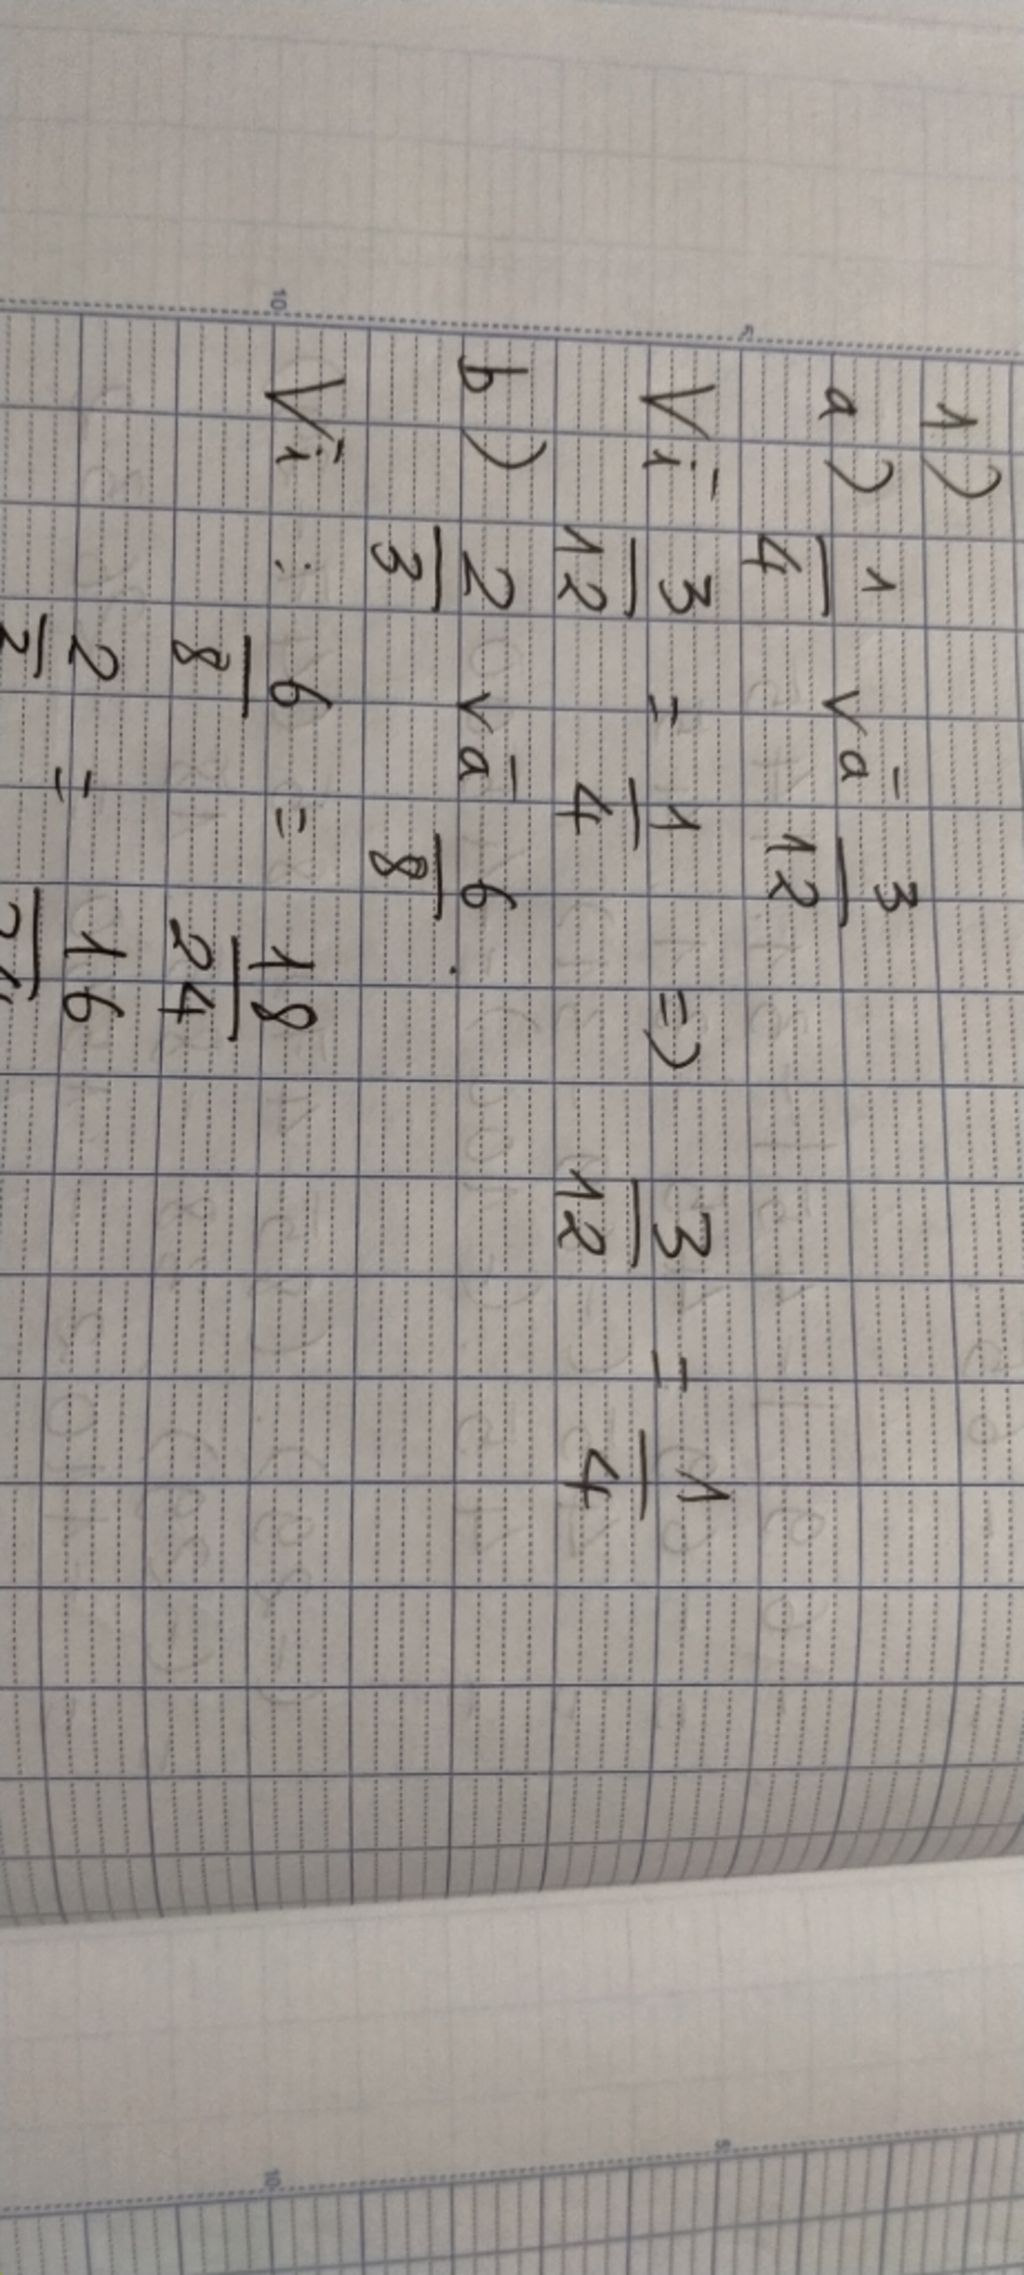 1)
a) 1/4 và 3/12
Vì 3/12 = 1/4 => 3/12 = 1/4
b) 2/3 và 6/8
Vì : 6/8 = 18/24
2 = 16
5
10
5
10